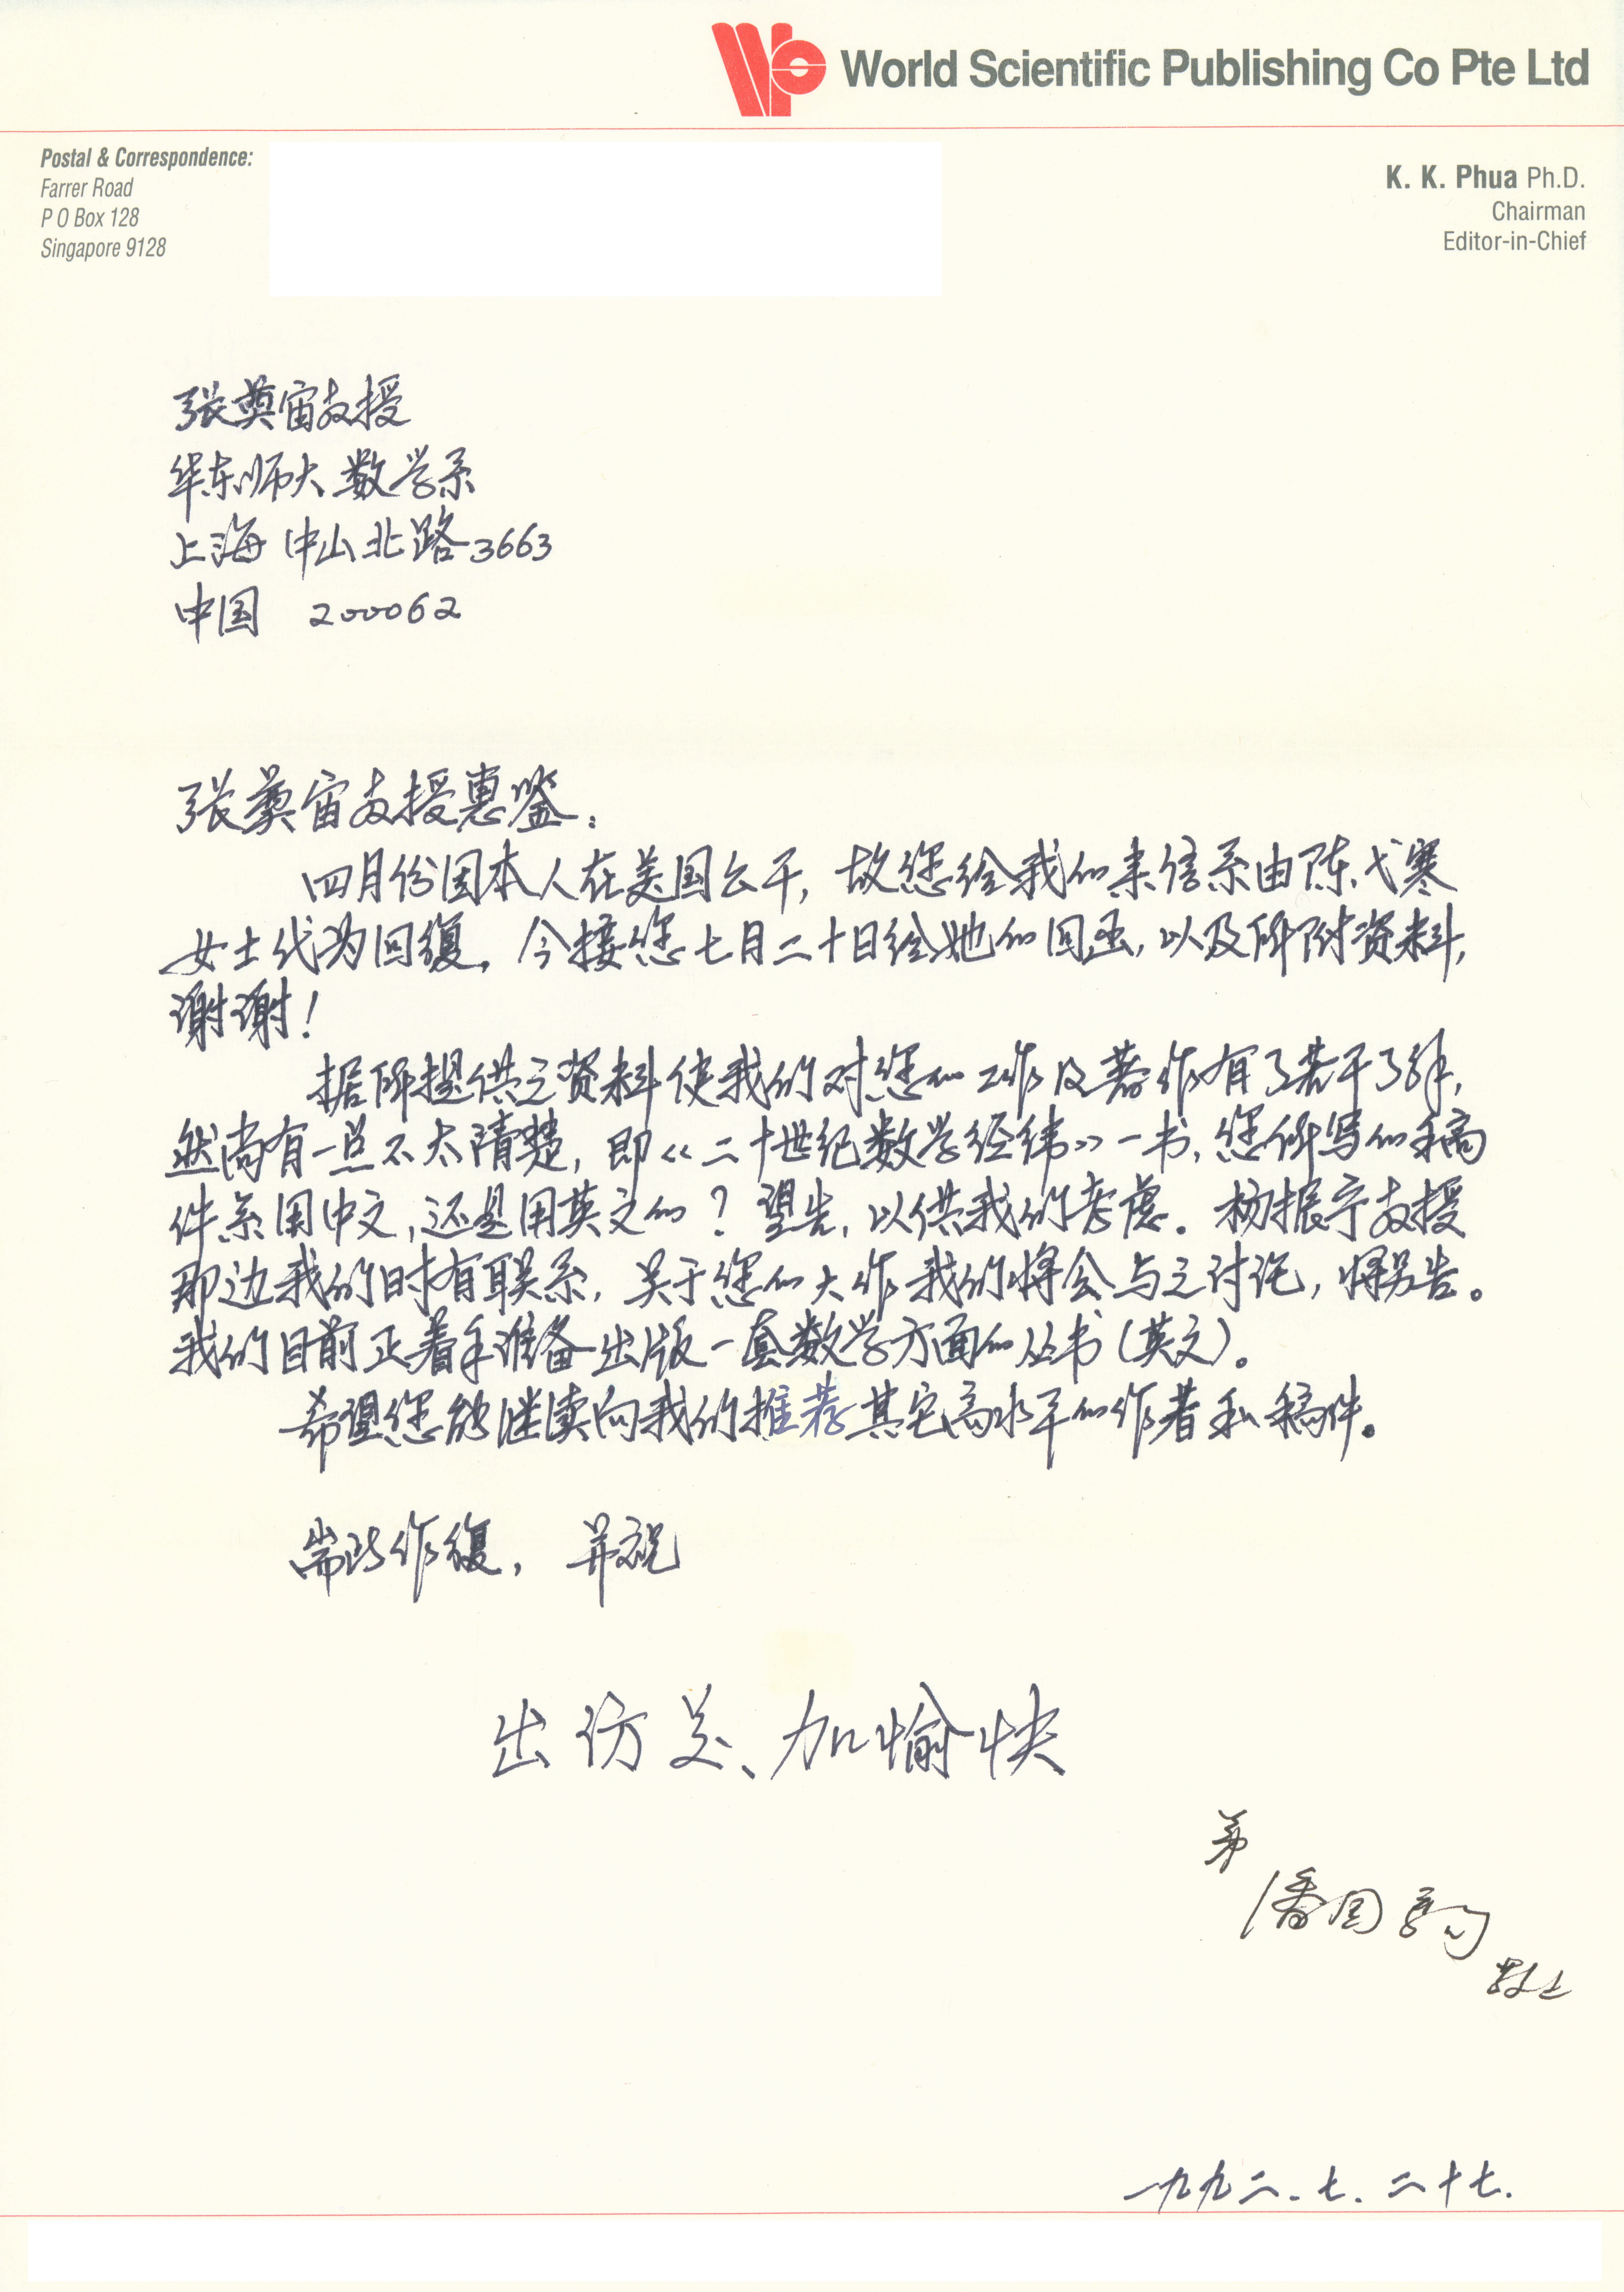 World Scientific Publishing Co Pte Ltd
Postal & Correspondence:
Farrer Road
P O Box 128
Singapore 9128
K. K. Phua Ph.D.
Chairman
Editor-in-Chief
张奠宙教授
华东师大数学系
上海中山北路3663
中国 200062
张奠宙教授惠鉴：
四月份因本人在美国公干，故您给我的来信系由陈弋寒
女士代为回復，今接您七月二十日给她的回函，以及所附资料，
谢谢！
据所提供之资料使我们对您的工作及著作有了若干了解，
然尚有一点不太清楚，即《二十世纪数学经纬》一书，您所写的稿
件系用中文，还是用英文的？望告，以供我们考虑。杨振宁教授
那边我们时有联系，关于您的大作我们将会与之讨论，将另告。
我们目前正着手准备出版一套数学方面的丛书（英文）。
希望您能继续向我们推荐其它高水平的作者和稿件。
耑此作復，并祝
出访美、加愉快
弟
潘国驹
敬上
一九九二．七．二十七．